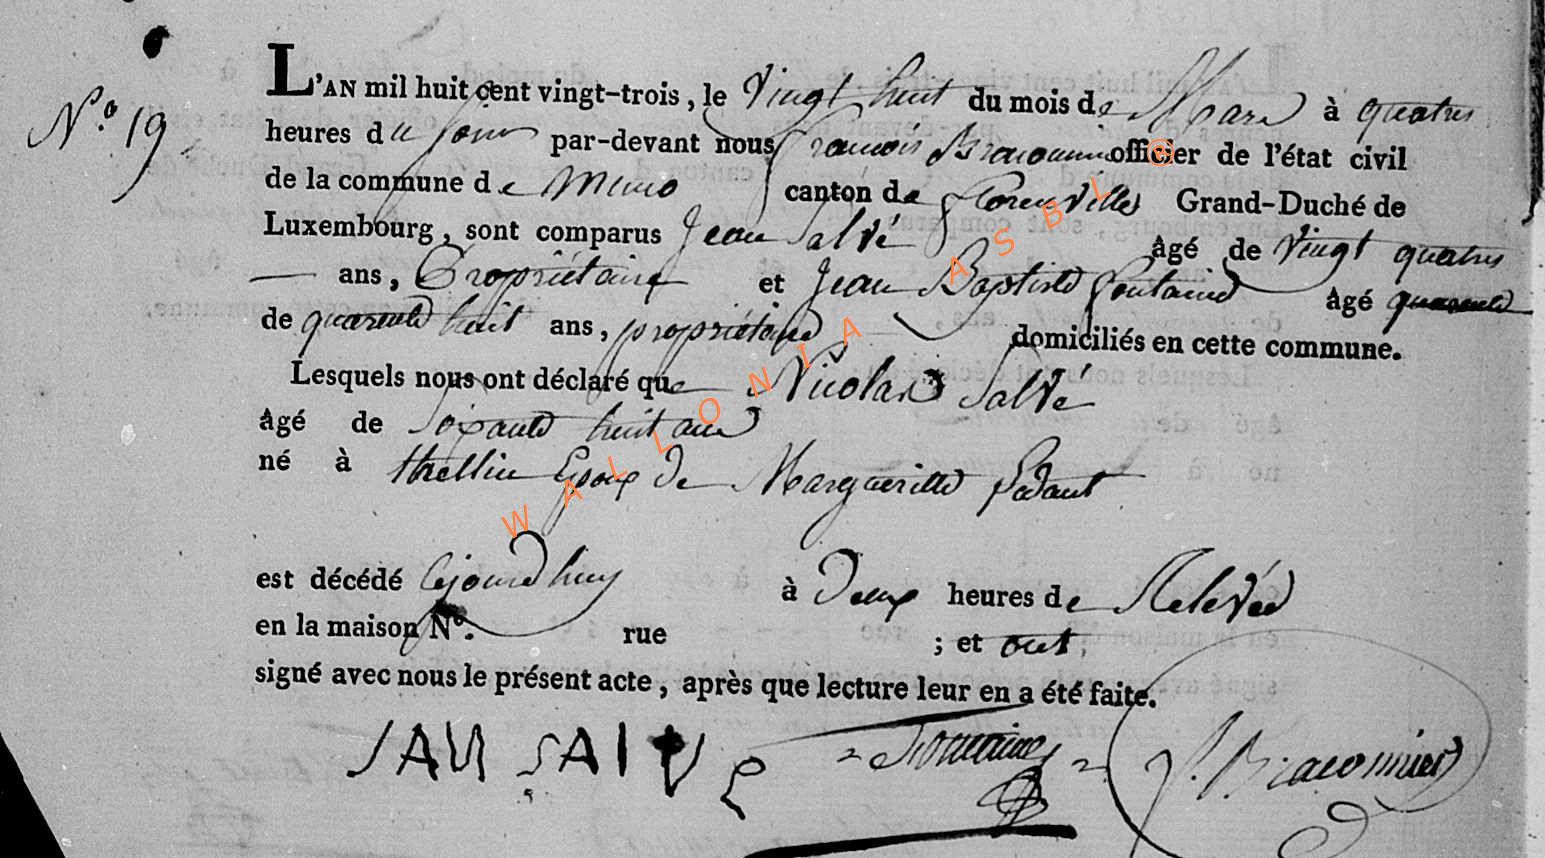 N.o 19
L'AN mil huit cent vingt-trois, le vingt huit du mois de Mars à quatre
heures du jour par-devant nous francois Braconnier officier de l'état civil
de la commune de Muno canton de florenville Grand-Duché de
Luxembourg, sont comparus Jean Salvé âgé de vingt quatre
ans, Propriétaire et Jean Baptiste fontaine âgé
de quarente huit ans, propriétaire domiciliés en cette commune.
Lesquels nous ont déclaré que Nicolas Salvé
âgé de Soixante huit ans
né à Epoux de Marguerite
est décédé cejourd'huy à Deux heures de Relevée
en la maison N.o rue ; et ont
signé avec nous le présent acte, après que lecture leur en a été faite.
JAN SALVE fontaine f. Braconnier
WALLONIA ASBL ©